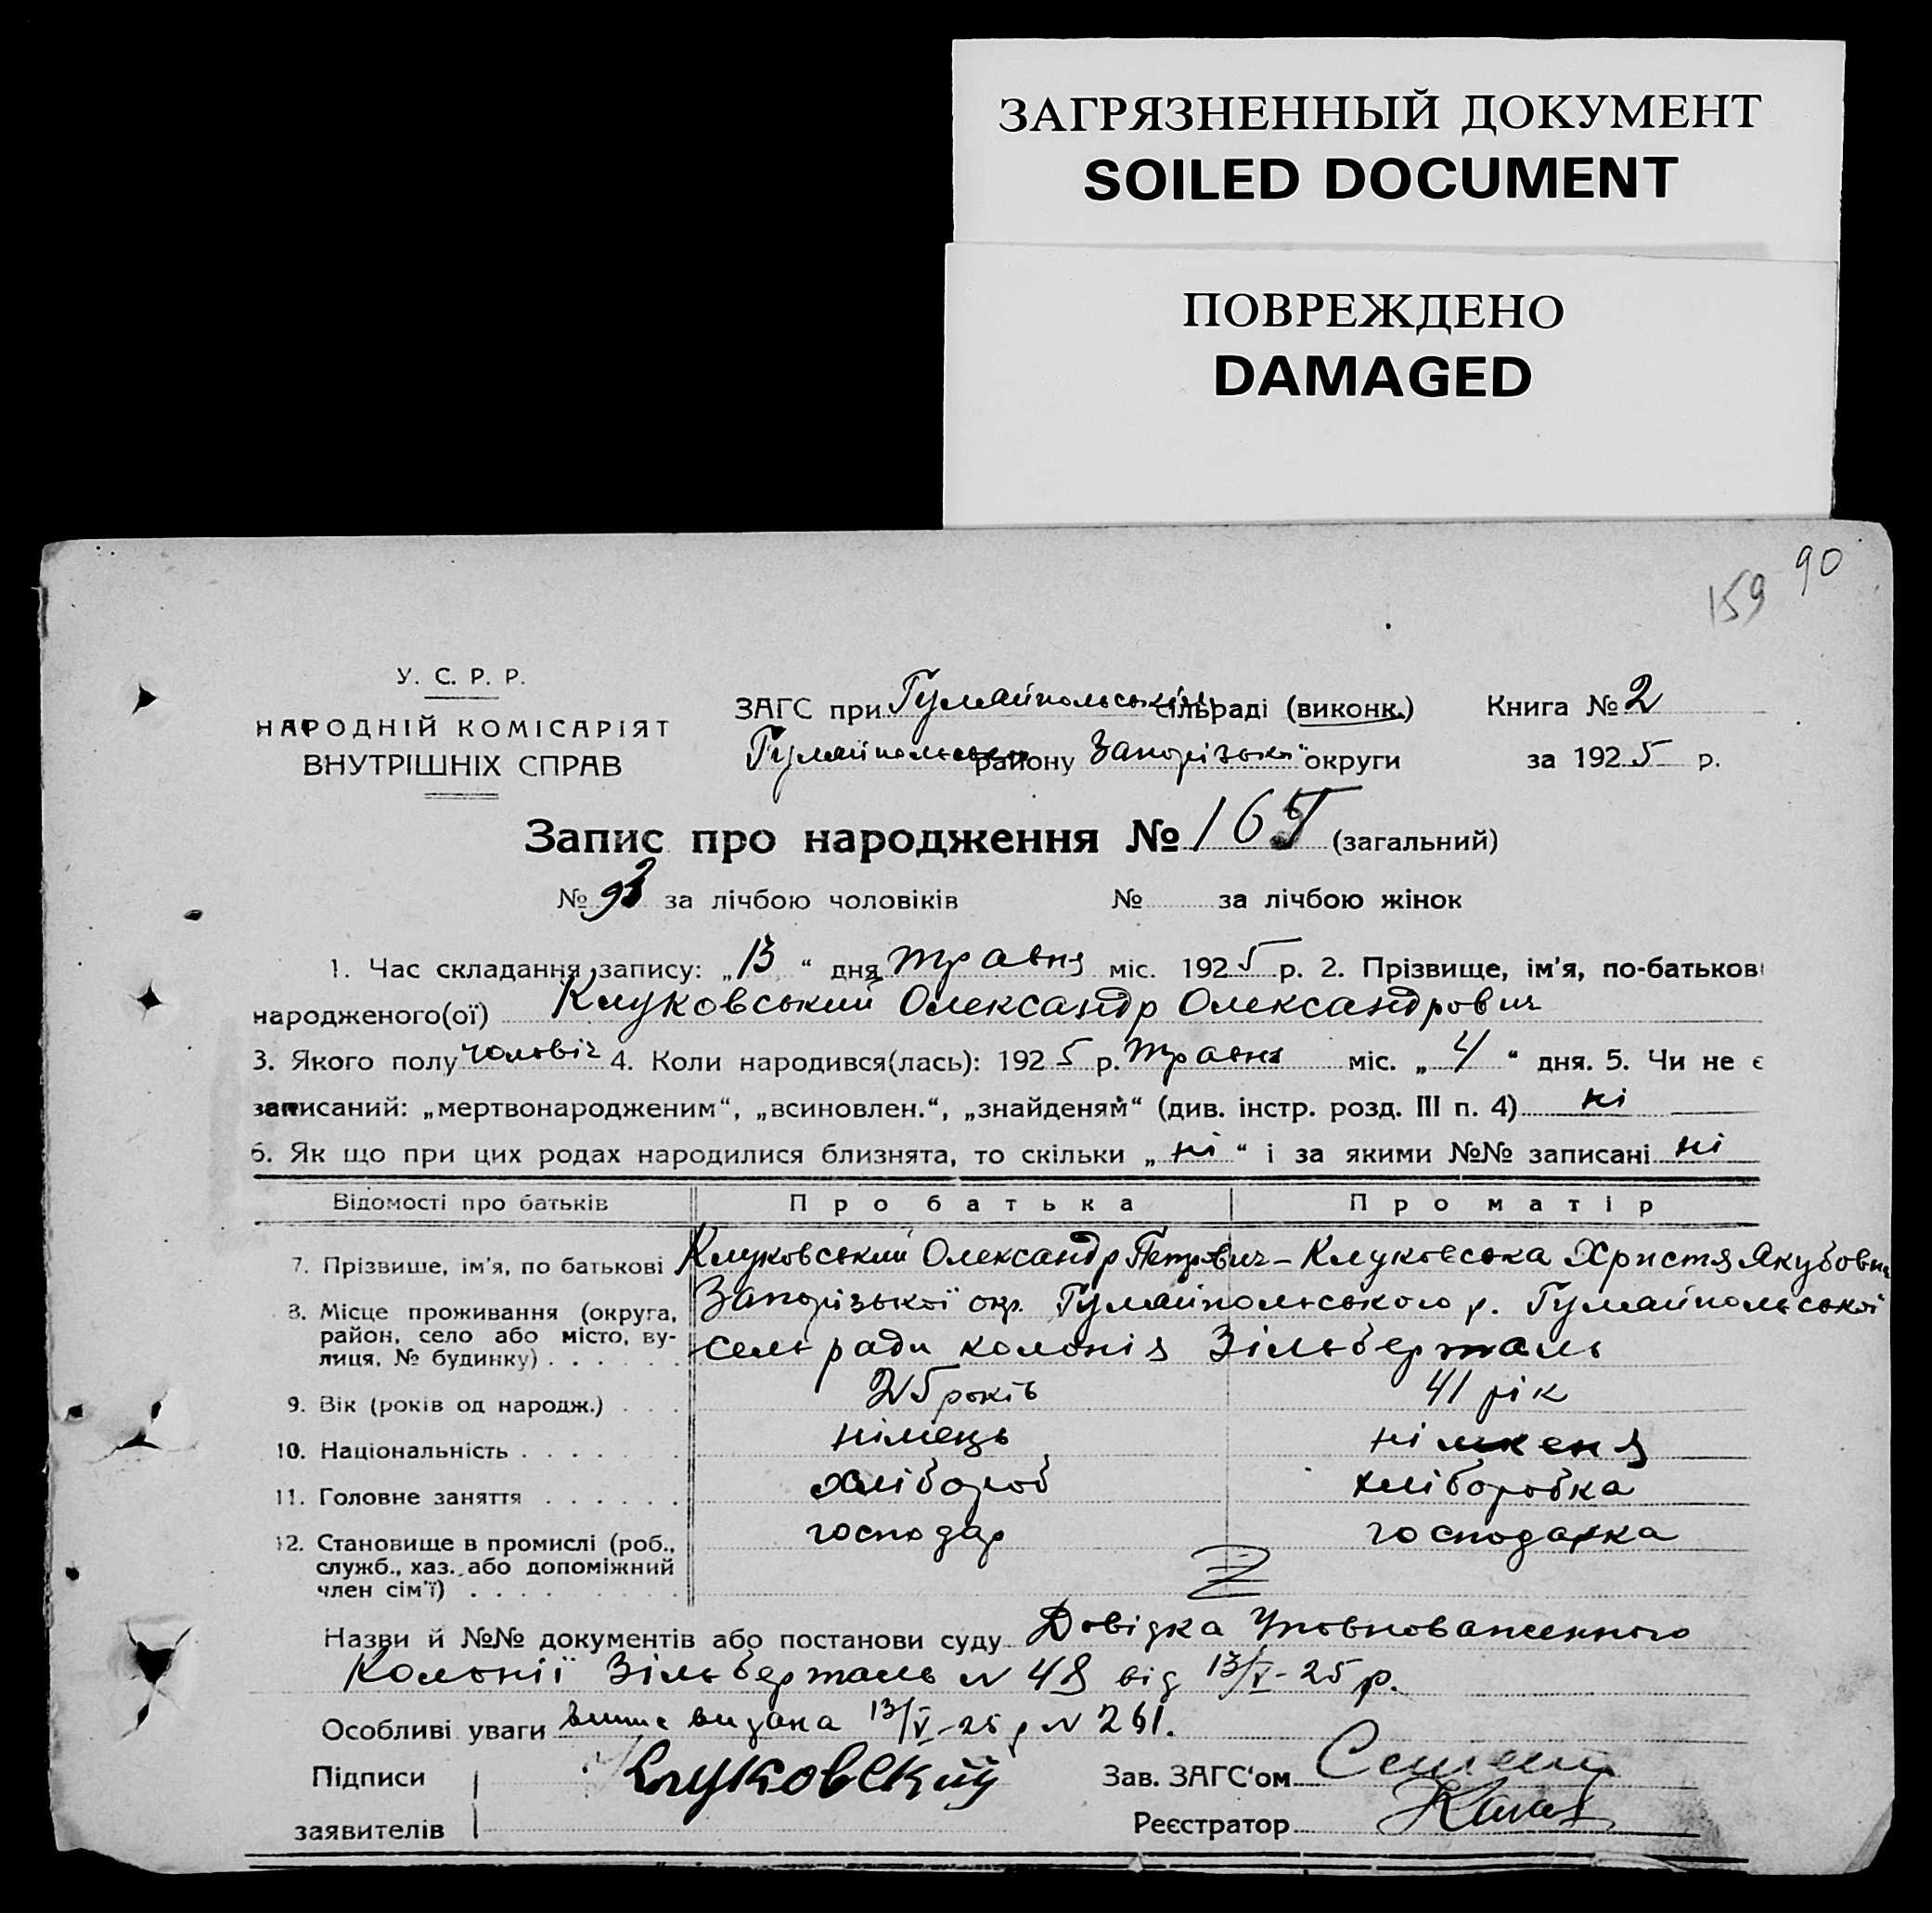 ЗАГРЯЗНЕННЫЙ ДОКУМЕНТ
SOILED DOCUMENT
ПОВРЕЖДЕНО
DAMAGED
90
159
У. С. Р. Р.
НАРОДНІЙ КОМІСАРІЯТ
ВНУТРІШНІХ СПРАВ
ЗАГС при Гуляйпольській сільраді (виконк.) Книга № 2
Гуляйпольськ району Запорізької округи за 1925 р.
Запис про народження № 165 (загальний)
№ 93 за лічбою чоловіків № за лічбою жінок
1. Час складання запису: „13“ дня травня міс. 1925 р. 2. Прізвище, ім'я, по-батькові
народженого(ої) Клуковський Олександр Олександрович
3. Якого полу чоловіч 4. Коли народився(лась): 1925 р. травня міс. „4“ дня. 5. Чи не є
записаний: „мертвонародженим“, „всиновлен.“, „знайденям“ (див. інстр. розд. III п. 4) ні
6. Як що при цих родах народилися близнята, то скільки „ні“ і за якими №№ записані ні
Відомості про батьків Про батька Про матір
7. Прізвише, ім'я, по батькові Клуковський Олександр Петрович – Клуковська Христя Якубовн
8. Місце проживання (округа, район, село або місто, вулиця, № будинку) Запорізької окр. Гуляйпольського р. Гуляйпольської
сельради колонія Зільберталь
9. Вік (років од народж.) 25 років 41 рік
10. Національність німець німкеня
11. Головне заняття хлібороб хліборобка
12. Становище в промислі (роб., служб., хаз., або допоміжний член сім'ї) господар господарка
Назви й №№ документів або постанови суду Довідка Уповноваженного
Кольонії Зільберталь № 48 від 13/V-25 р.
Особливі уваги видана 13/V-25 р № 261.
Підписи Клуковский Зав. ЗАГС'ом
заявителів Реєстратор